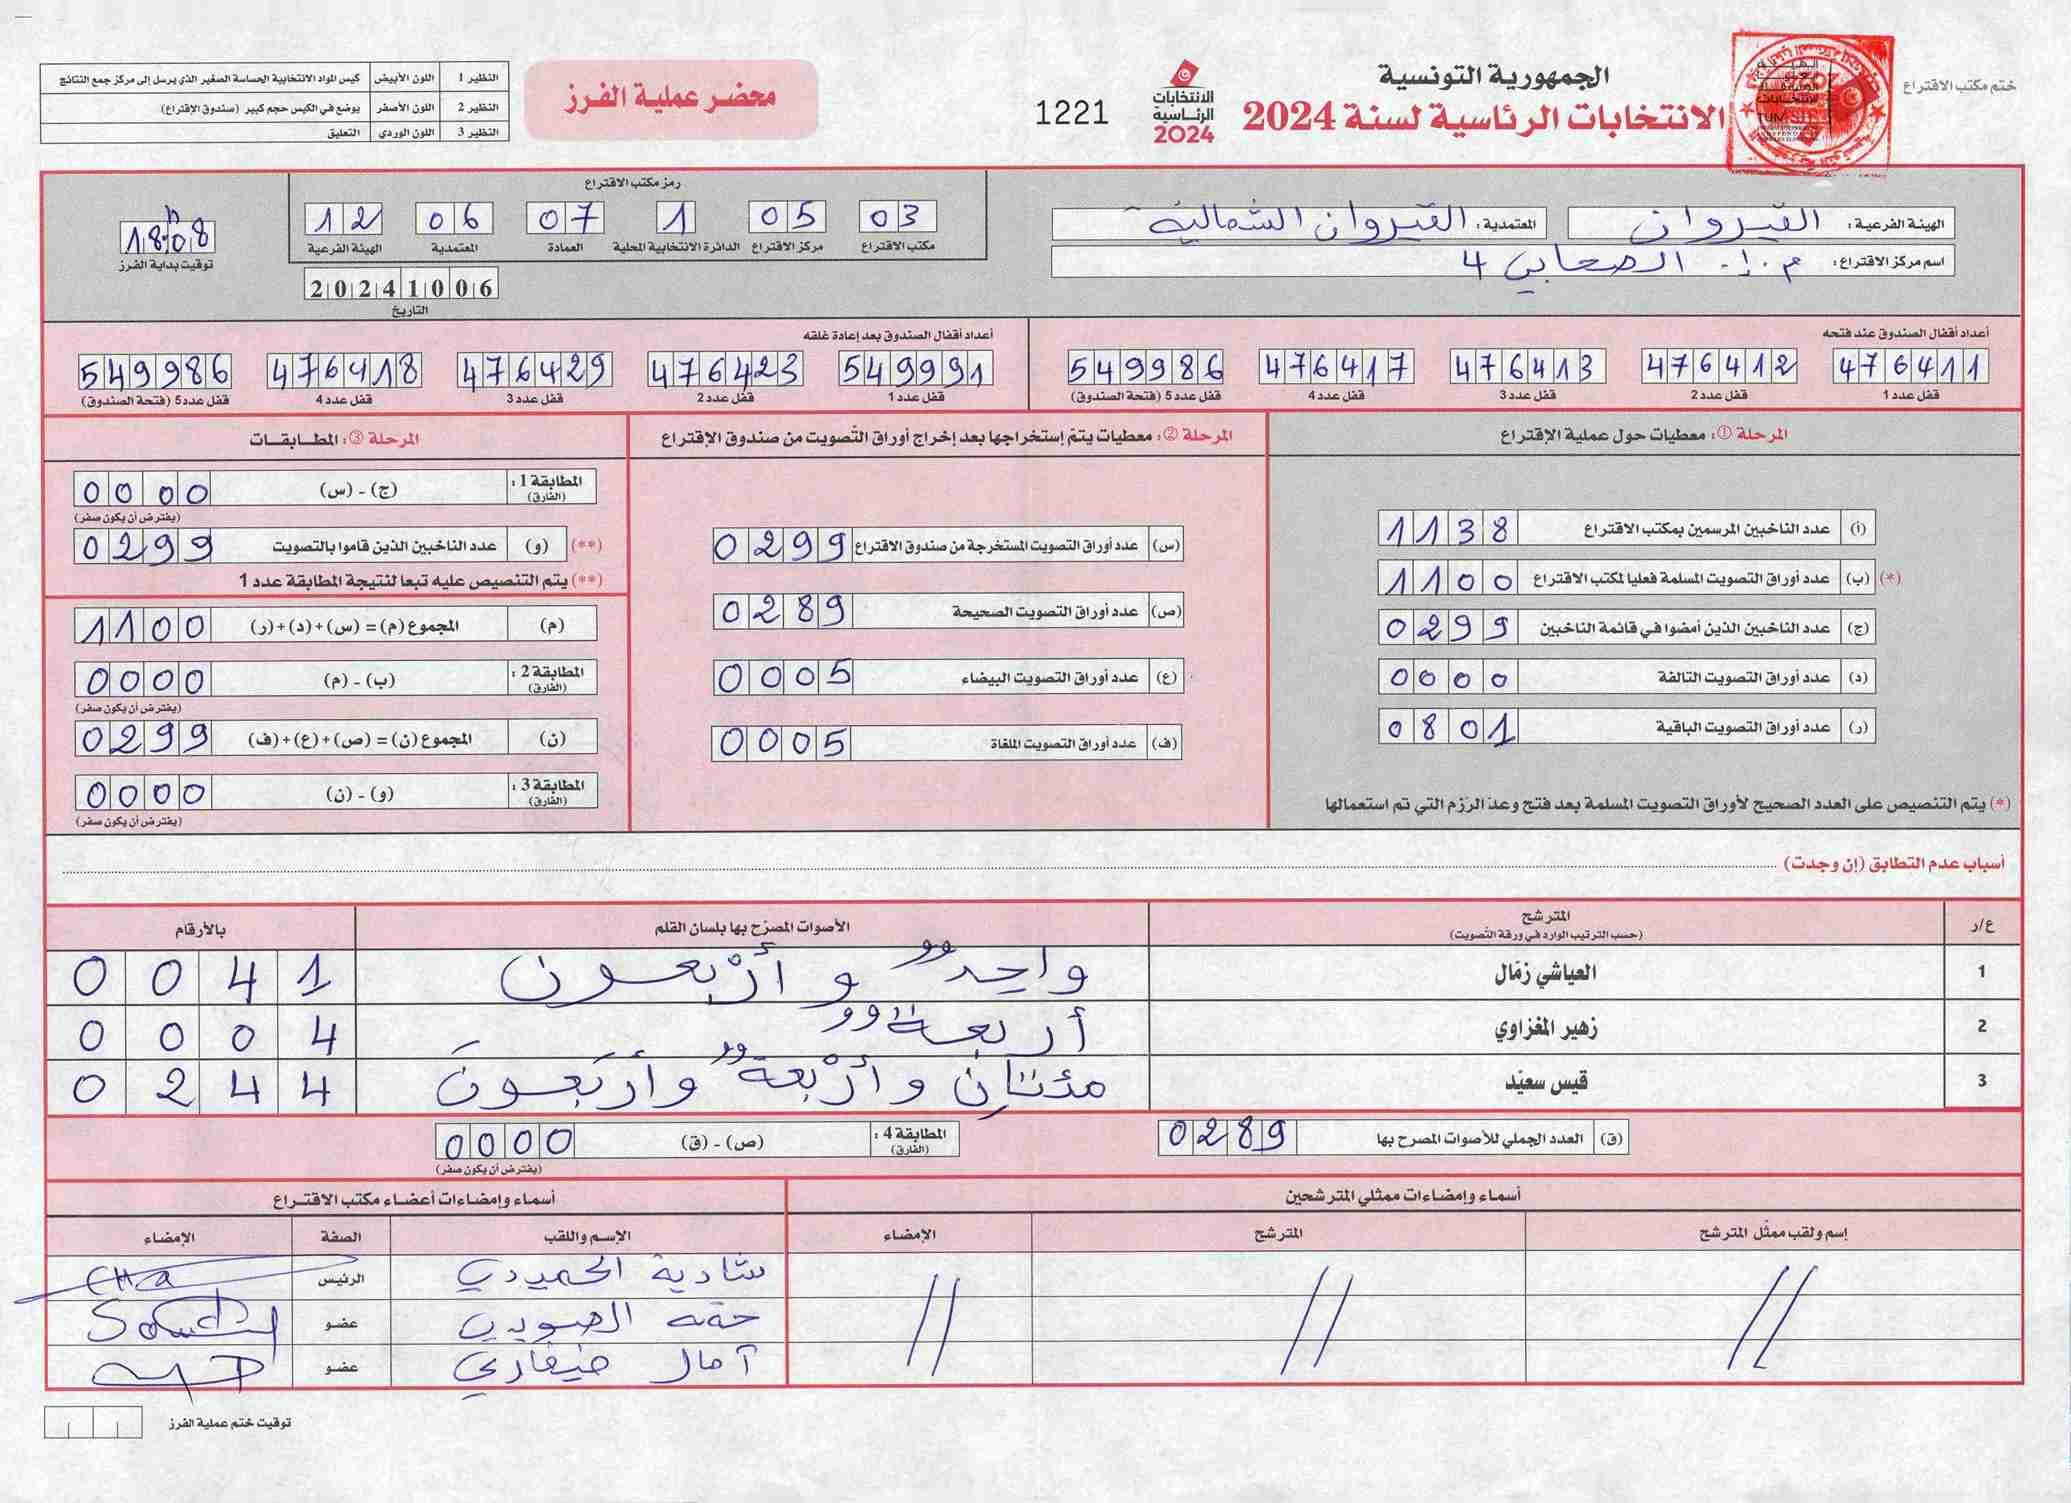 ختم مكتب الاقتراع
الجمهورية التونسية
الانتخابات الرئاسية لسنة 2024
الانتخابات
الرئاسية
2024
1221
محضر عملية الفرز
النظير 1 اللون الأبيض كيس المواد الانتخابية الحساسة الصغير الذي يرسل إلى مركز جمع النتائج
النظير 2 اللون الأصفر يوضع في الكيس حجم كبير (صندوق الإقتراع)
النظير 3 اللون الوردي التعليق
الهيئة الفرعية : القيروان
المعتمدية : القيروان الشمالية
اسم مركز الاقتراع : م.إ. الصحابي 4
رمز مكتب الاقتراع
03 05 1 07 06 12
مكتب الاقتراع مركز الاقتراع الدائرة الانتخابية المحلية العمادة المعتمدية الهيئة الفرعية
20241006
التاريخ
18h08
توقيت بداية الفرز
أعداد أقفال الصندوق عند فتحه
476411 476412 476413 476417 549986
قفل عدد 1 قفل عدد 2 قفل عدد 3 قفل عدد 4 قفل عدد 5 (فتحة الصندوق)
أعداد أقفال الصندوق بعد إعادة غلقه
549991 476423 476429 476418 549986
قفل عدد 1 قفل عدد 2 قفل عدد 3 قفل عدد 4 قفل عدد 5 (فتحة الصندوق)
المرحلة ① : معطيات حول عملية الإقتراع
(أ) عدد الناخبين المرسمين بمكتب الاقتراع 1138
(*) (ب) عدد أوراق التصويت المسلمة فعليا لمكتب الاقتراع 1100
(ج) عدد الناخبين الذين أمضوا في قائمة الناخبين 0299
(د) عدد أوراق التصويت التالفة 0000
(ر) عدد أوراق التصويت الباقية 0801
(*) يتم التنصيص على العدد الصحيح لأوراق التصويت المسلمة بعد فتح وعدّ الرّزم التي تم استعمالها
المرحلة ② : معطيات يتمّ إستخراجها بعد إخراج أوراق التّصويت من صندوق الإقتراع
(س) عدد أوراق التصويت المستخرجة من صندوق الاقتراع 0299
(ص) عدد أوراق التصويت الصحيحة 0289
(ع) عدد أوراق التصويت البيضاء 0005
(ف) عدد أوراق التصويت الملغاة 0005
المرحلة ③ : المطابقات
المطابقة 1 : (الفارق) (ج) - (س) 0000
(يفترض أن يكون صفر)
(**) (و) عدد الناخبين الذين قاموا بالتصويت 0299
(**) يتم التنصيص عليه تبعا لنتيجة المطابقة عدد 1
(م) المجموع (م) = (س) + (د) + (ر) 1100
المطابقة 2 : (الفارق) (ب) - (م) 0000
(يفترض أن يكون صفر)
(ن) المجموع (ن) = (ص) + (ع) + (ف) 0299
المطابقة 3 : (الفارق) (و) - (ن) 0000
(يفترض أن يكون صفر)
أسباب عدم التطابق (إن وجدت)
ع/ر المترشح الأصوات المصرّح بها بلسان القلم بالأرقام
(حسب الترتيب الوارد في ورقة التّصويت)
1 العياشي زمّال واحد وأربعون 0041
2 زهير المغزاوي أربعة 0004
3 قيس سعيّد مئتان وأربعة وأربعون 0244
(ق) العدد الجملي للأصوات المصرح بها 0289
المطابقة 4 : (الفارق) (ص) - (ق) 0000
(يفترض أن يكون صفر)
أسماء وإمضاءات ممثلي المترشحين
إسم ولقب ممثّل المترشح المترشح الإمضاء
// // //
أسماء وإمضاءات أعضاء مكتب الاقتراع
الإسم واللقب الصفة الإمضاء
شادية الحميدي الرئيس
عضو
آمال عضو
توقيت ختم عملية الفرز